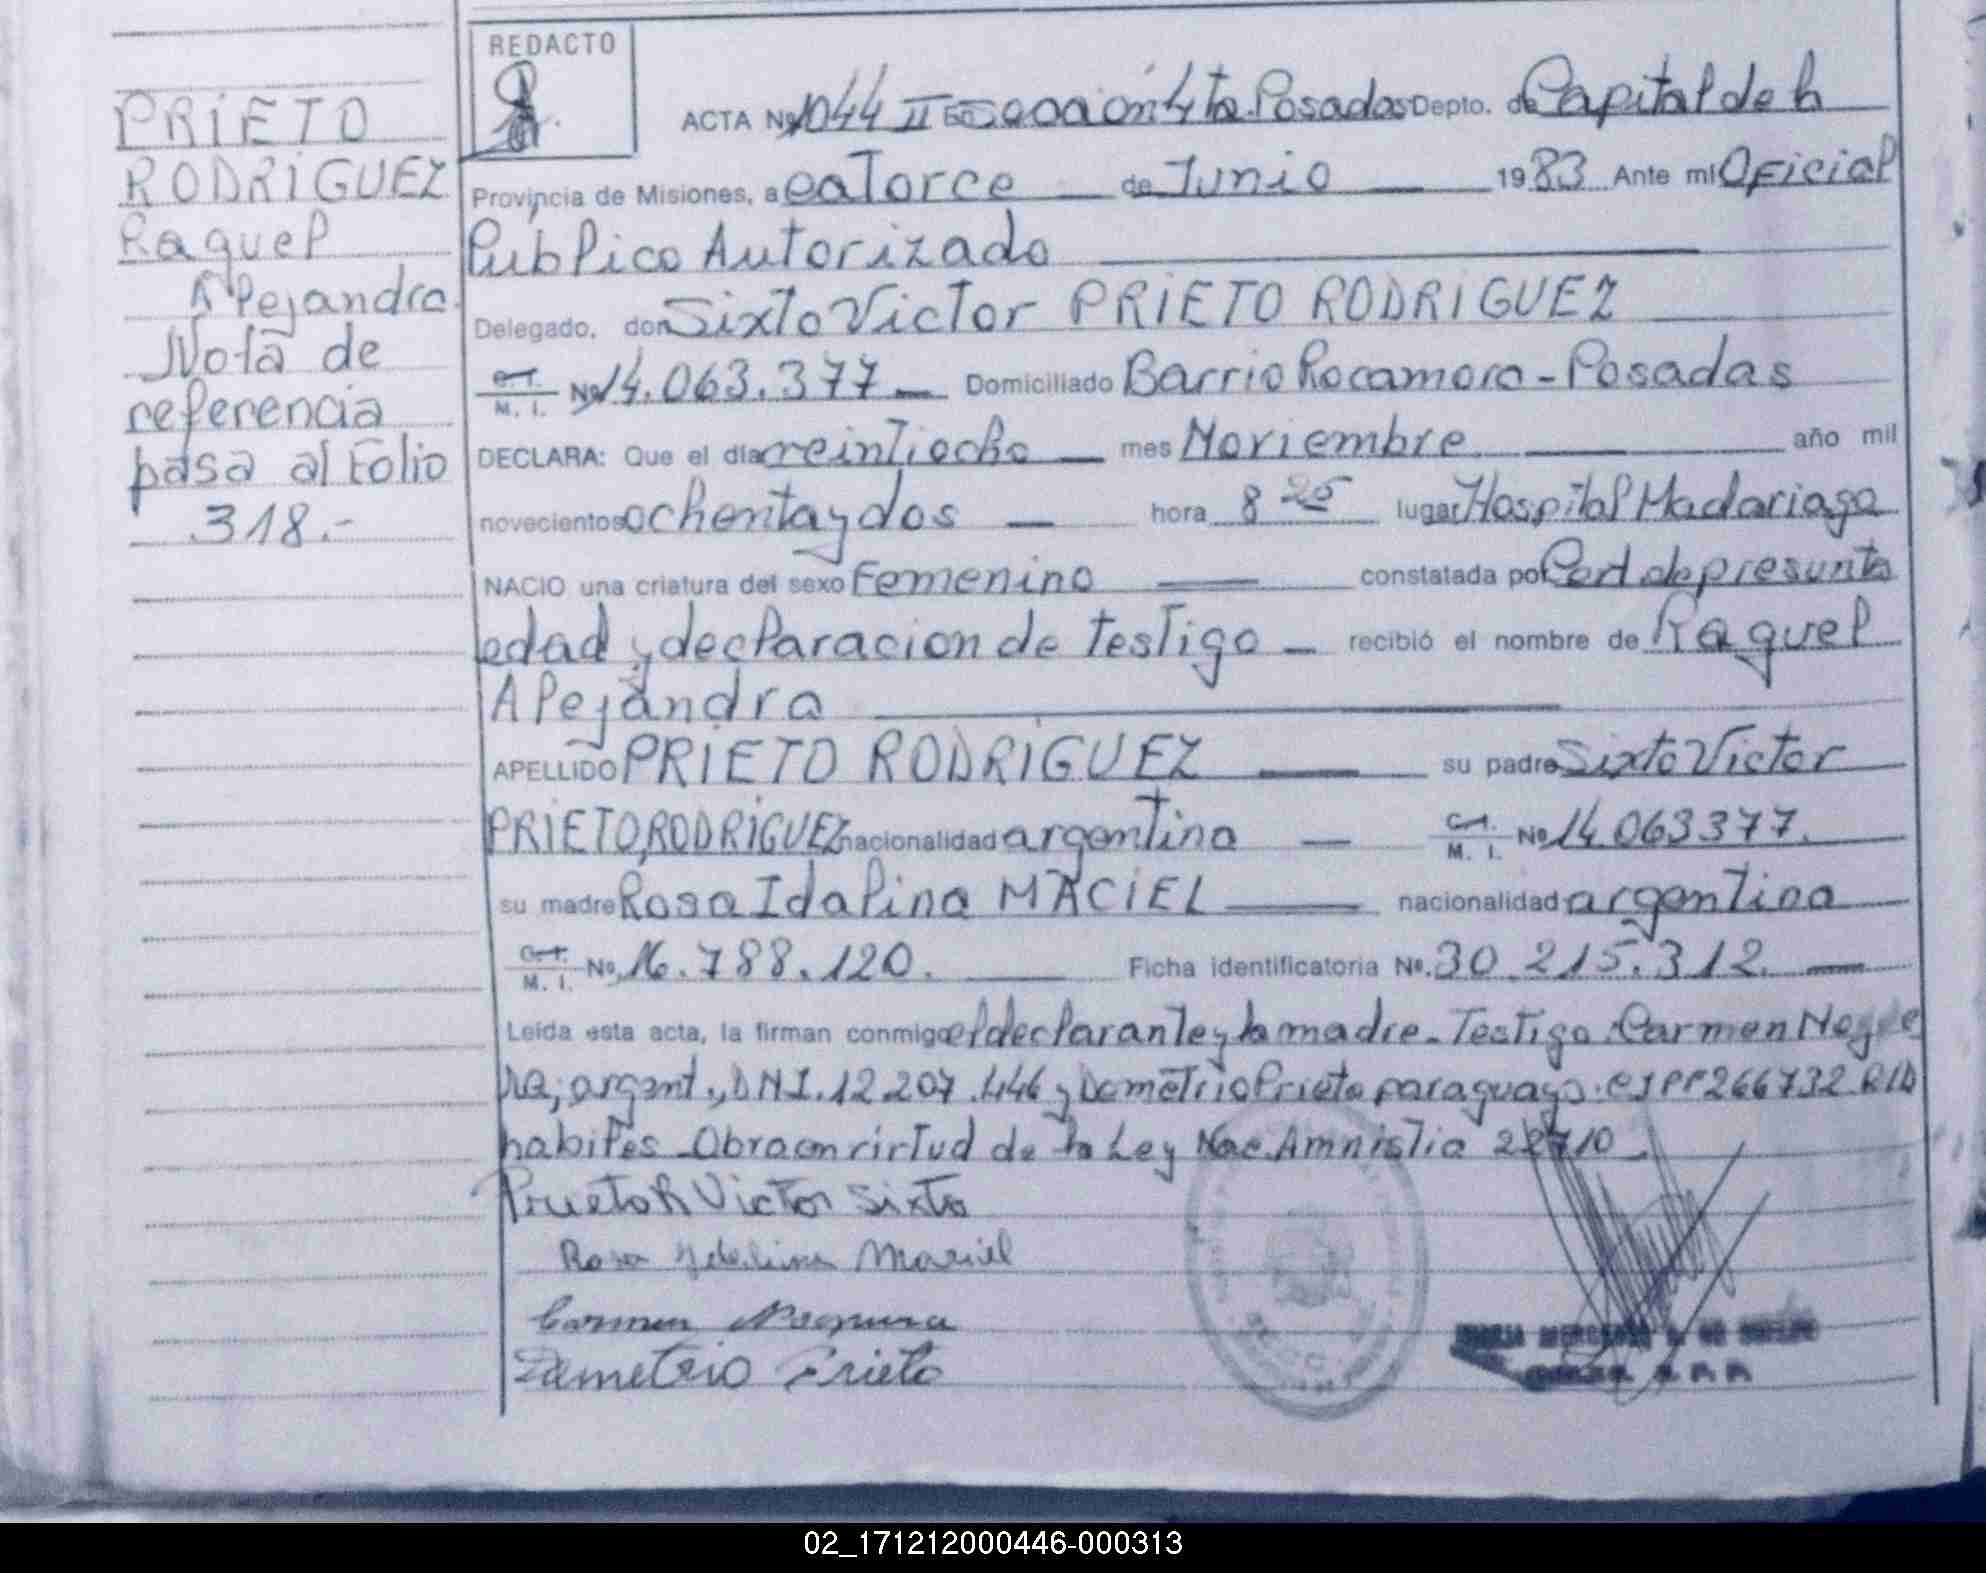 PRIETO
RODRIGUEZ
Raquel
Alejandra
Nota de
referencia
pasa al Folio
318.-
REDACTO
ACTA Nº 1044 II Sección 4ta Posadas Depto. de Capital de la
Provincia de Misiones, a catorce de Junio 1983 Ante mí Oficial
Publico Autorizado
Delegado, don Sixto Victor PRIETO RODRIGUEZ
C.I.
M. I. Nº 14.063.377 Domiciliado Barrio Rocamora - Posadas
DECLARA: Que el día veintiocho mes Noviembre año mil
novecientos ochenta y dos hora 8 25 lugar Hospital Madariaga
NACIO una criatura del sexo Femenino constatada por Cert de presunta
edad y declaracion de testigo recibió el nombre de Raquel
Alejandra
APELLIDO PRIETO RODRIGUEZ su padre Sixto Victor
PRIETO RODRIGUEZ nacionalidad argentina C.I.
M. I. Nº 14.063377.
su madre Rosa Idalina MACIEL nacionalidad argentina
C.I.
M. I. Nº 16.788.120. Ficha identificatoria Nº. 30.215.312.
Leída esta acta, la firman conmigo el declarante y la madre. Testigo: Carmen
argent., DNI. 12.207.446 y Demetrio Prieto paraguayo. 266732
habiles Obra en virtud de la Ley Nac. Amnistia 22710
Prieto R Victor Sixto
Rosa Idalina Maciel
Carmen
Demetrio Prieto
02_171212000446-000313